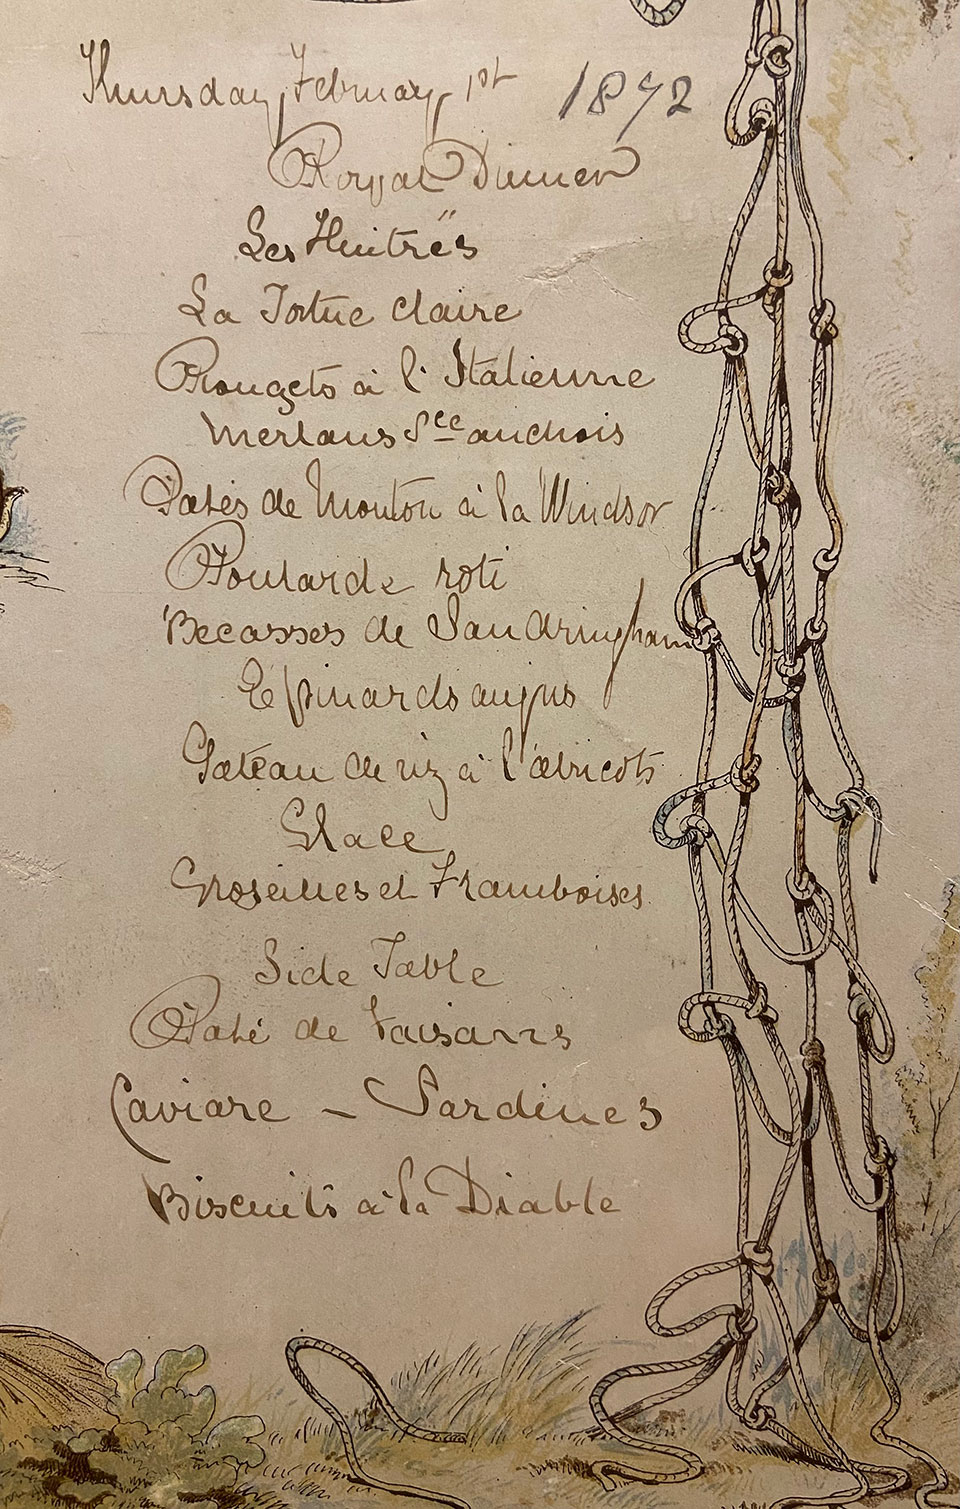 Thursday, February, 1st 1872
Royal Dinner
Les Huitrës
La Tortue claire
Rougets à l'Italienne
Merlans Sce anchois
Patés de Mouton à la Windsor
Poularde roti
Becasses de Sandringham
Epinards au jus
Gateau de riz à l'abricots
Glace
Groseilles et Framboises
Side Table
Paté de Faisans
Caviare - Sardines
Biscuits à la Diable